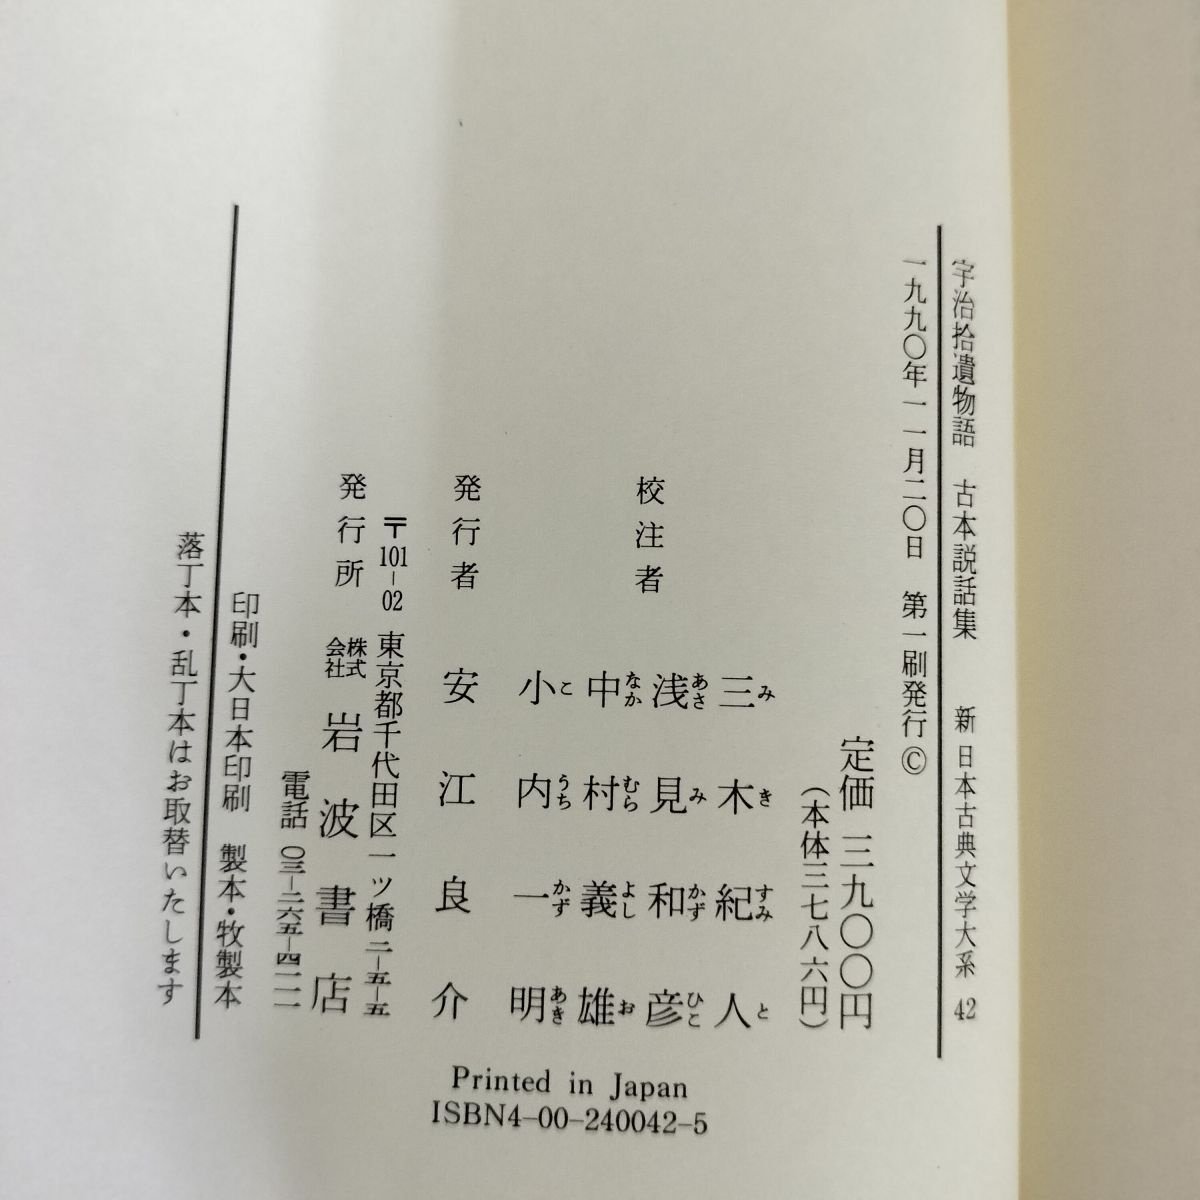 宇治拾遺物語　古本説話集　　新 日本古典文学大系 42
一九九〇年一一月二〇日　第一刷発行 ©
定価 三九〇〇円
(本体三七八六円)
校注者
三木紀人
みきすみと
浅見和彦
あさみかずひこ
中村義雄
なかむらよしお
小内一明
こうちかずあき
発行者　安江良介
〒101-02 東京都千代田区一ツ橋二-五-五
発行所　株式会社　岩波書店
電話 〇三-二六五-四一一一
印刷・大日本印刷　製本・牧製本
落丁本・乱丁本はお取替いたします
Printed in Japan
ISBN4-00-240042-5